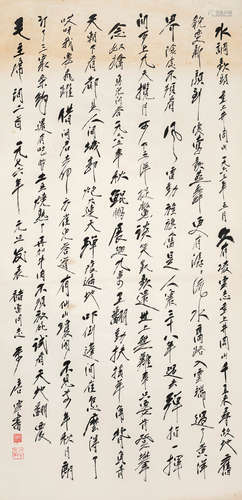 水調歌頭 重上井岡山 一九六五年五月 久有凌雲志重上井岡山千里來尋故地舊
貌變新顏到處鶯歌燕舞更有潺潺流水高路入雲端過了黃洋
界險處不須看 風雷動旌旗奮是人寰三十八年過去彈指一揮
間可上九天攬月可下五洋捉鱉談笑凱歌還世上無難事只要肯登攀
念奴嬌 鳥兒問答 一九六五年秋 鯤鵬展翅九萬里翻動扶搖羊角背負青
天朝下看都是人間城郭炮火連天彈痕遍地嚇倒蓬間雀怎麼得了
哎呀我要飛躍 借問君去何方雀兒答道有仙山瓊閣不見前年秋月朗
訂了三家條約還有吃的土豆燒熟了再加牛肉不須放屁試看天地翻覆
毛主席詞二首 一九七六年元旦發表